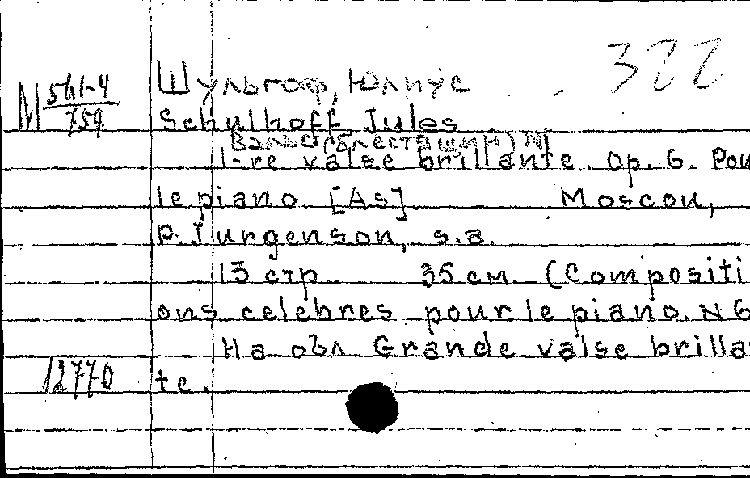 322
Шульгоф, Юлиус
М 561-4/759
Schulhoff Jules
Вальс (блестящий) №1
1-re valse brillante. op. 6. Pou
le piano [As] Moscou,
P. Jurgenson, s.a.
13 стр 35 см. (Compositi
ons celebres pour le piano. N 6
На обл Grande valse brilla
12770 te.